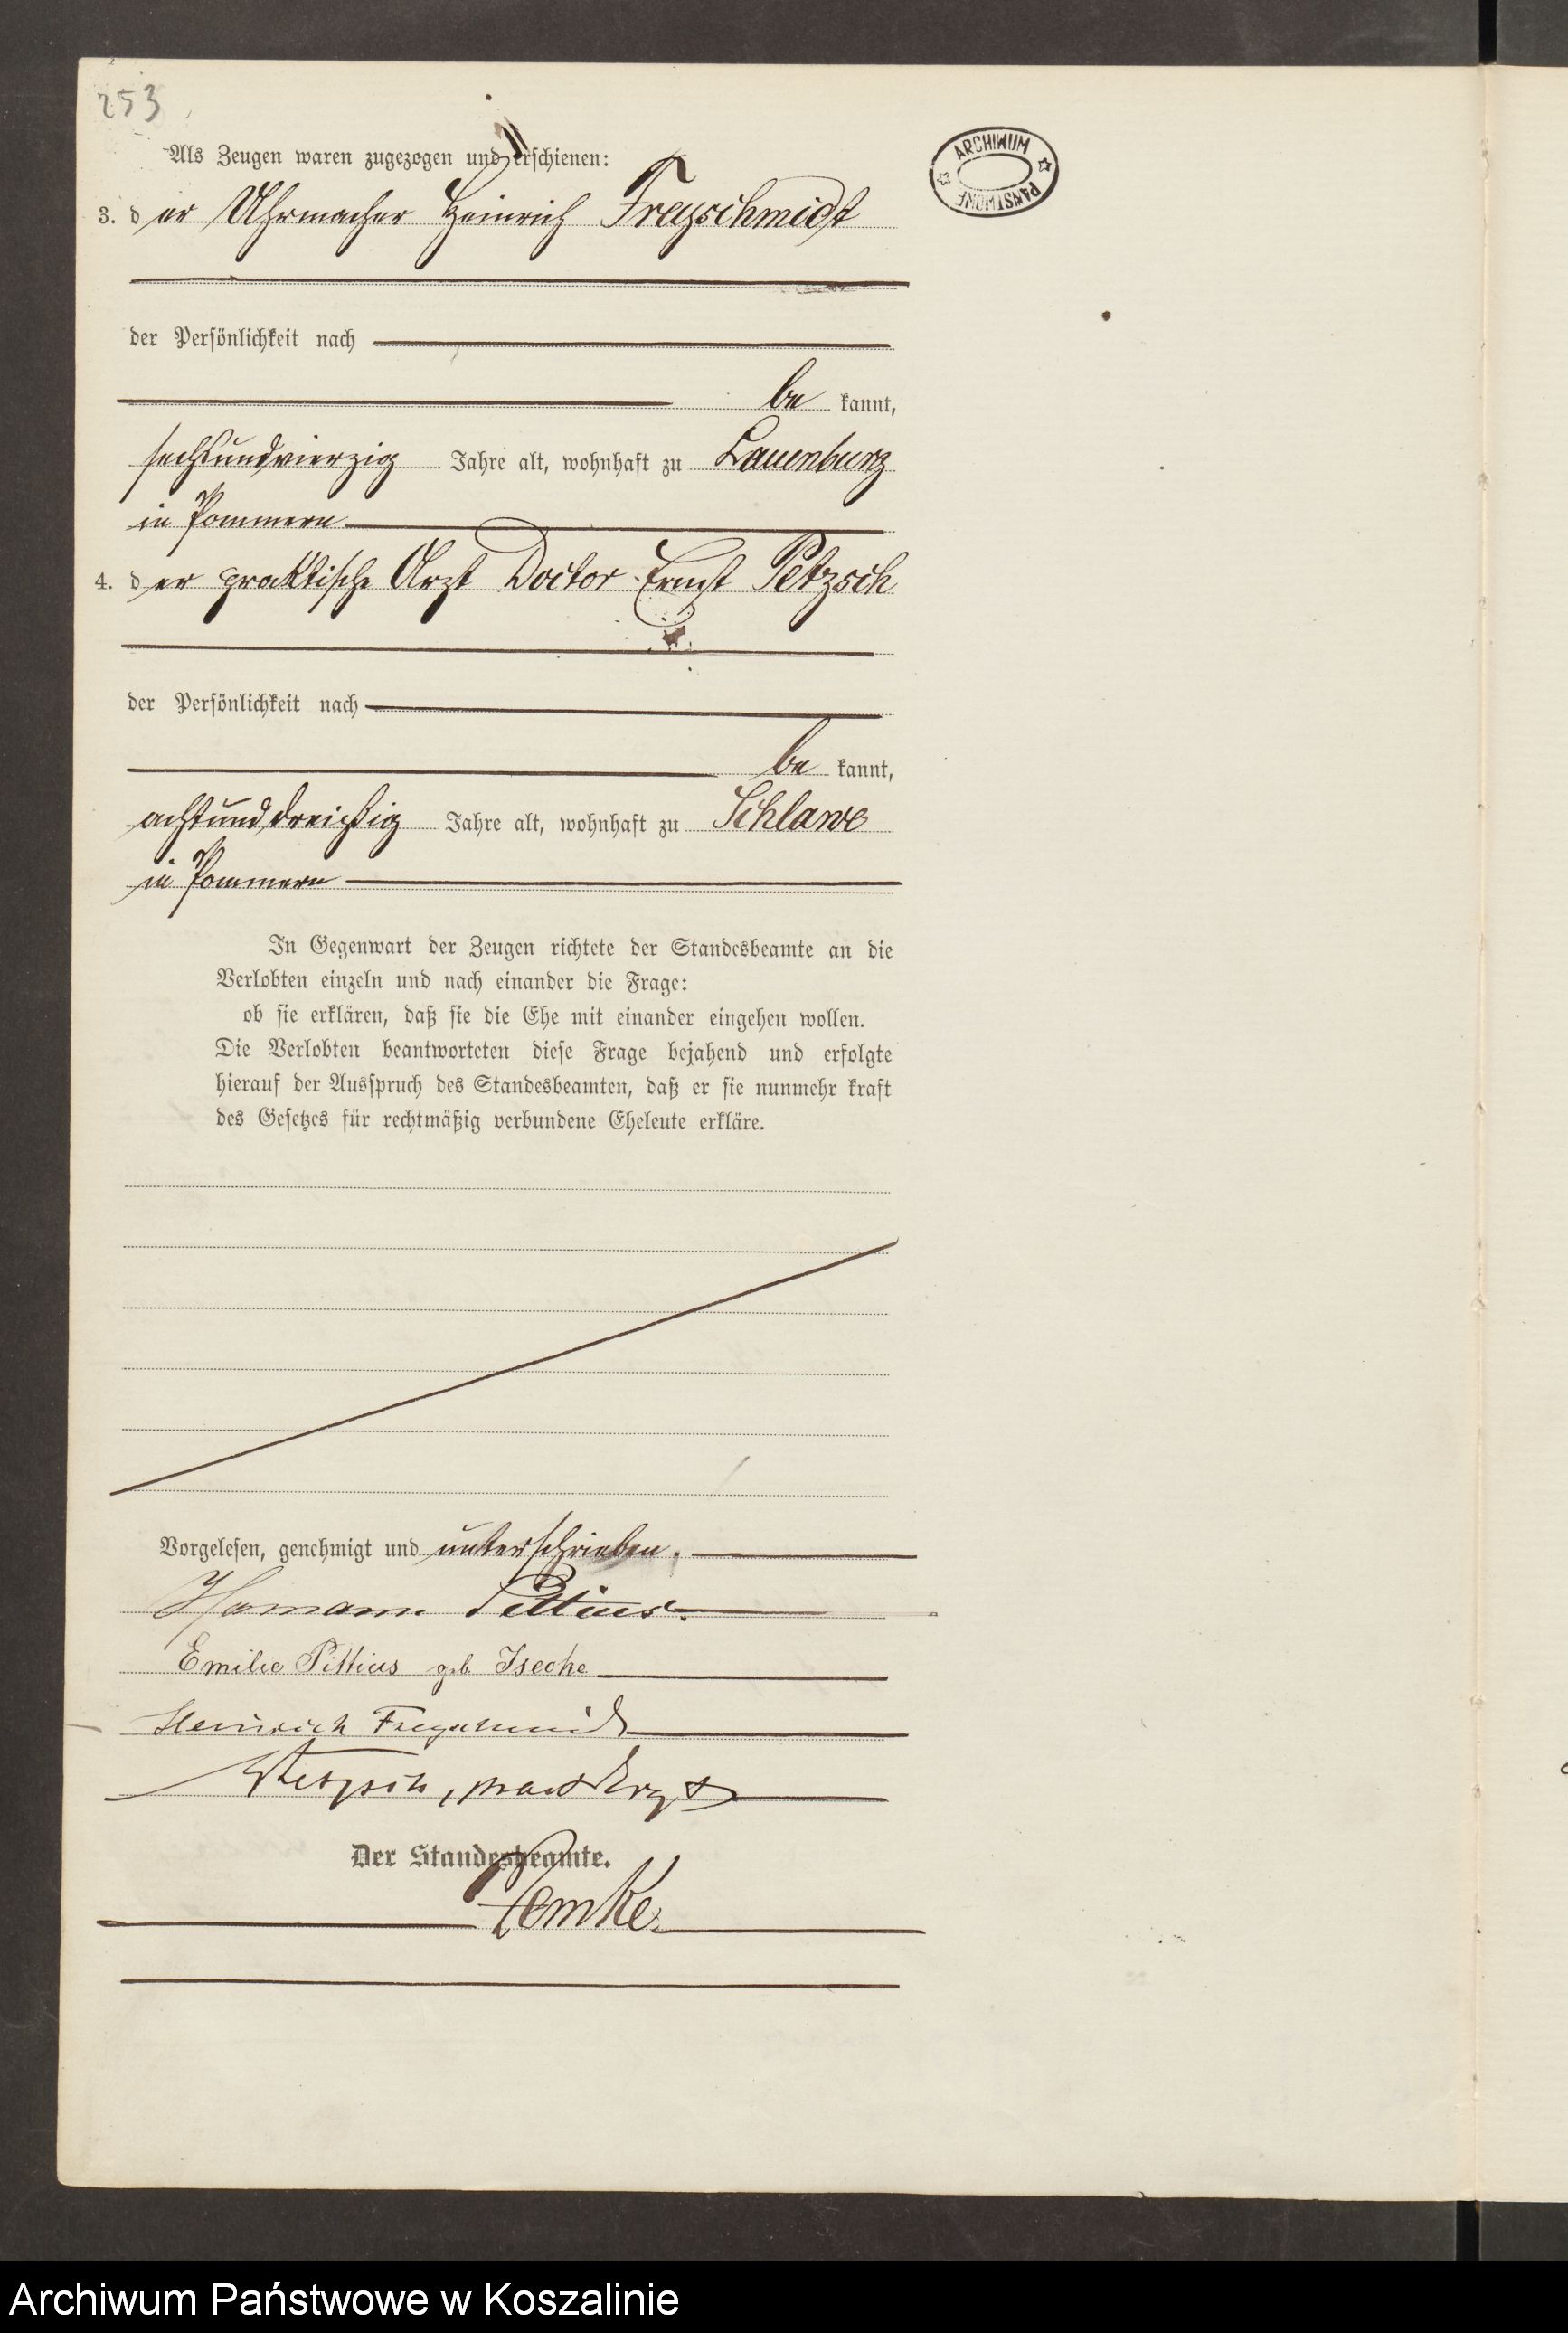 253
Als Zeugen waren zugezogen und erschienen:
ARCHIWUM PAŃSTWOWE
3. der Uhrmacher Heinrich Freyschmidt
der Persönlichkeit nach
be kannt,
sechsundvierzig Jahre alt, wohnhaft zu Lauenburg
in Pommern
4. der praktische Arzt Doctor Ernst Petzsch
der Persönlichkeit nach
be kannt,
achtunddreißig Jahre alt, wohnhaft zu Schlawe
in Pommern
In Gegenwart der Zeugen richtete der Standesbeamte an die
Verlobten einzeln und nach einander die Frage:
ob sie erklären, daß sie die Ehe mit einander eingehen wollen.
Die Verlobten beantworteten diese Frage bejahend und erfolgte
hierauf der Ausspruch des Standesbeamten, daß er sie nunmehr kraft
des Gesetzes für rechtmäßig verbundene Eheleute erkläre.
Vorgelesen, genehmigt und unterschrieben.
Pittius.
Emilie Pittius geb. Isecke
Heinrich Freyschmidt
Petzsch, pract Arzt
Der Standesbeamte.
Archiwum Państwowe w Koszalinie